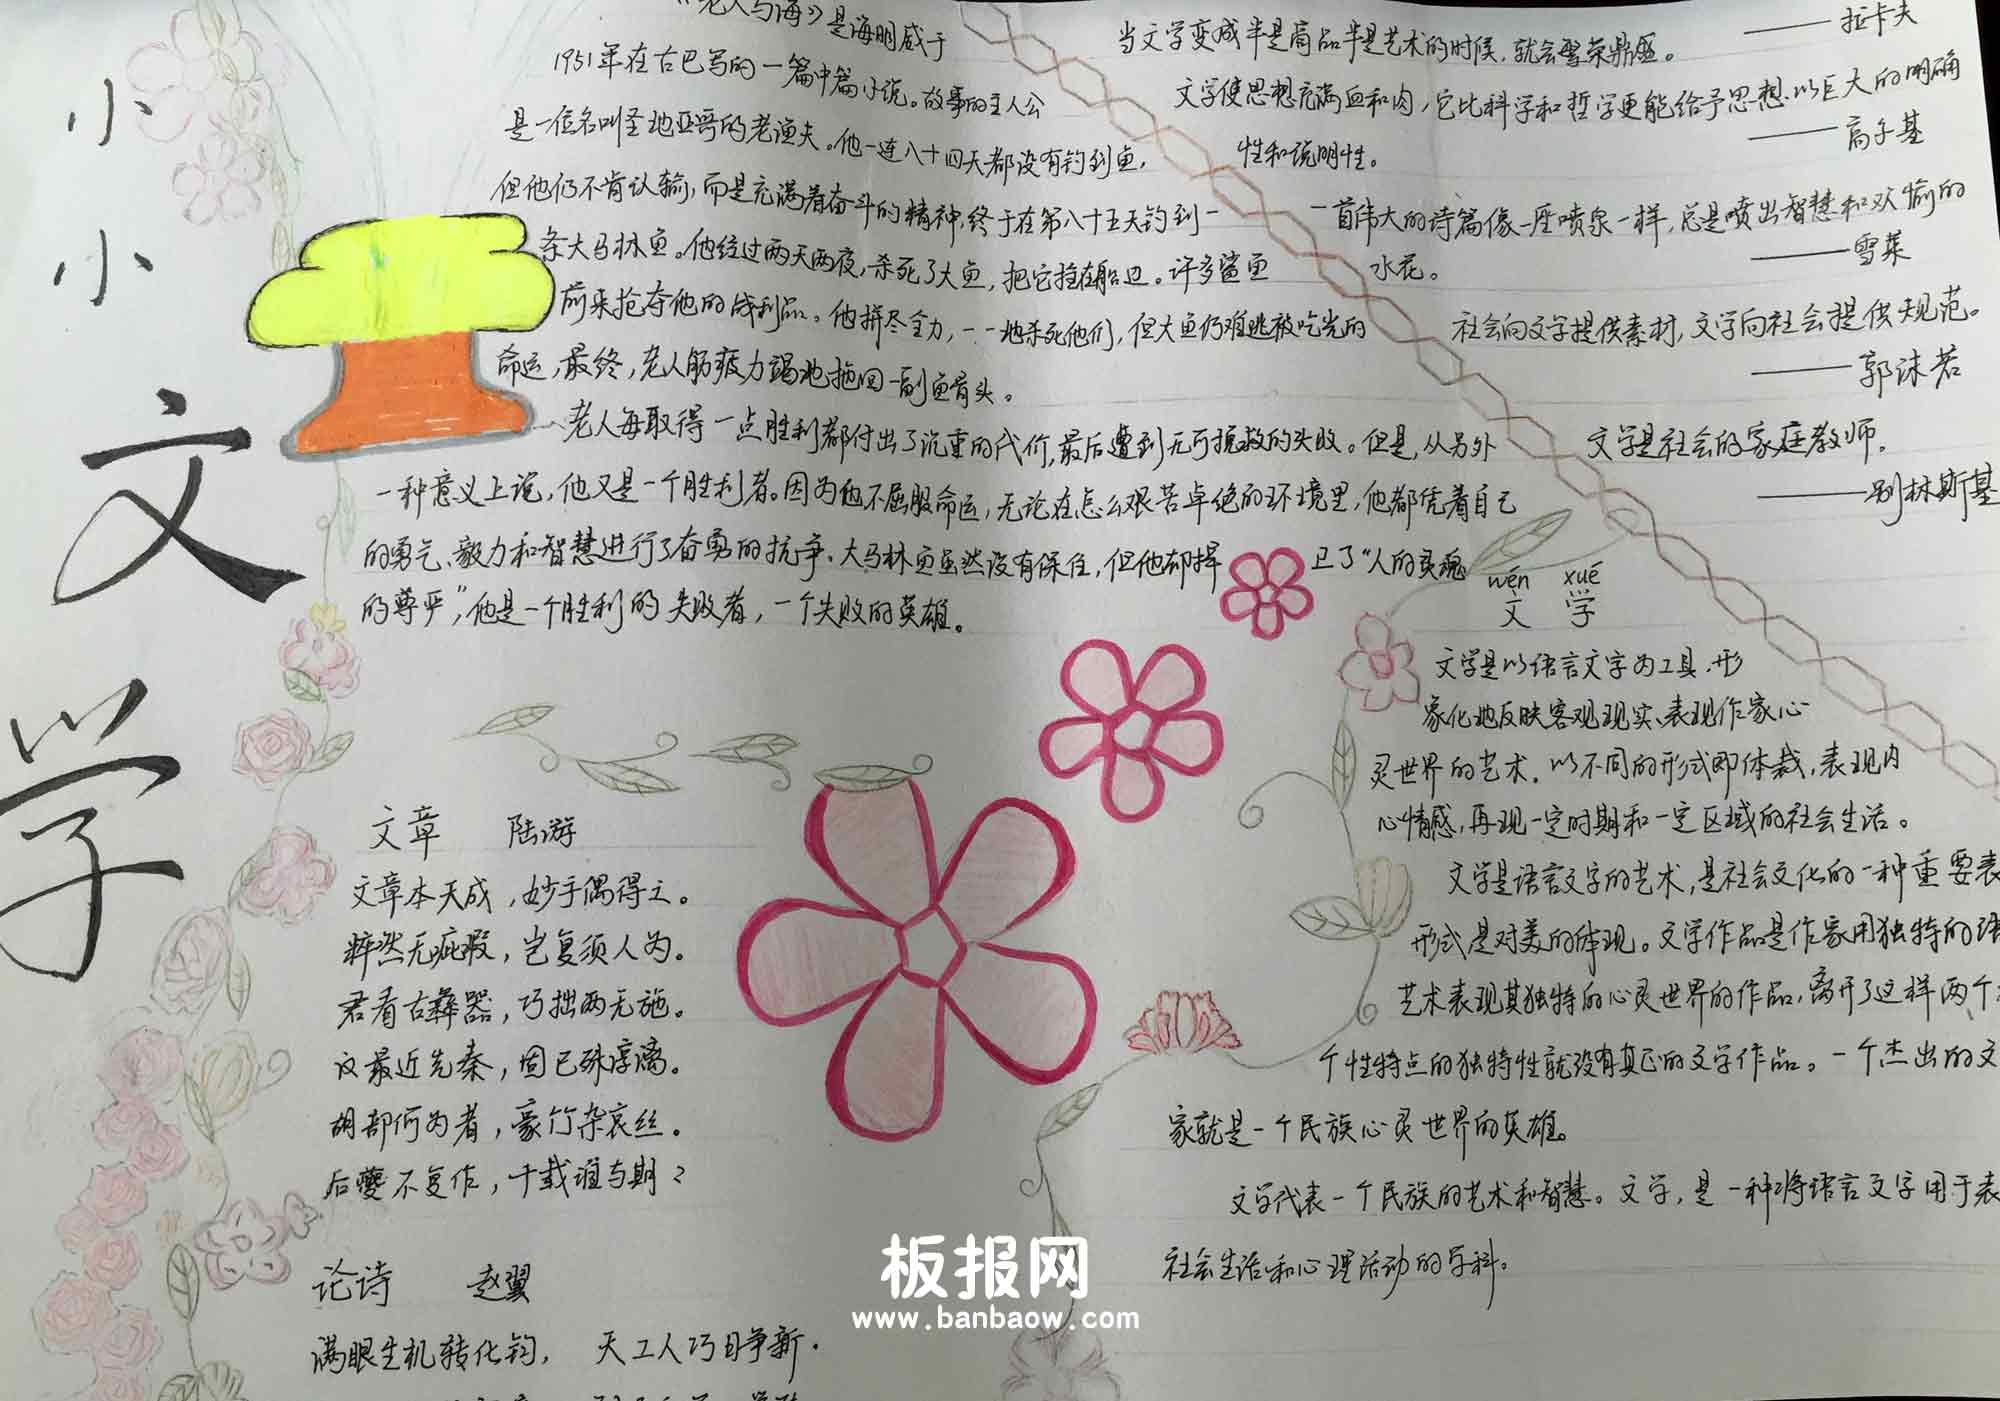 小小文学
《老人与海》是海明威于
1951年在古巴写的一篇中篇小说。故事的主人公
是一位名叫圣地亚哥的老渔夫。他一连八十四天都没有钓到鱼，
但他仍不肯认输，而是充满着奋斗的精神，终于在第八十五天钓到一
条大马林鱼。他经过两天两夜，杀死了大鱼，把它拴在船边。许多鲨鱼
前来抢夺他的战利品。他拼尽全力，一一地杀死他们，但大鱼仍难逃被吃光的
命运，最终，老人筋疲力竭地拖回一副鱼骨头。
老人每取得一点胜利都付出了沉重的代价，最后遭到无可挽救的失败。但是，从另外
一种意义上说，他又是一个胜利者。因为他不屈服命运，无论在怎么艰苦卓绝的环境里，他都凭着自己
的勇气、毅力和智慧进行了奋勇的抗争。大马林鱼虽然没有保住，但他却捍卫了“人的灵魂
的尊严”，他是一个胜利的失败者，一个失败的英雄。
当文学变成半是商品半是艺术的时候，就会繁荣鼎盛。
——拉卡夫
文学使思想充满血和肉，它比科学和哲学更能给予思想以巨大的明确
性和说明性。
——高尔基
一首伟大的诗篇像一座喷泉一样，总是喷出智慧和欢愉的
水花。
——雪莱
社会向文学提供素材，文学向社会提供规范。
——郭沫若
文学是社会的家庭教师。
——别林斯基
wén xué
文 学
文学是以语言文字为工具，形
象化地反映客观现实、表现作家心
灵世界的艺术，以不同的形式即体裁，表现内
心情感，再现一定时期和一定区域的社会生活。
文学是语言文字的艺术，是社会文化的一种重要表
形式是对美的体现。文学作品是作家用独特的语
艺术表现其独特的心灵世界的作品，离开了这样两个
个性特点的独特性就没有真正的文学作品。一个杰出的文
家就是一个民族心灵世界的英雄。
文学代表一个民族的艺术和智慧。文学，是一种将语言文字用于表
社会生活和心理活动的学科。
文章 陆游
文章本天成，妙手偶得之。
粹然无疵瑕，岂复须人为。
君看古彝器，巧拙两无施。
汉最近先秦，固已殊淳漓。
胡部何为者，豪竹杂哀丝。
后夔不复作，千载谁与期？
论诗 赵翼
满眼生机转化钧， 天工人巧日争新.
板报网
www.banbaow.com